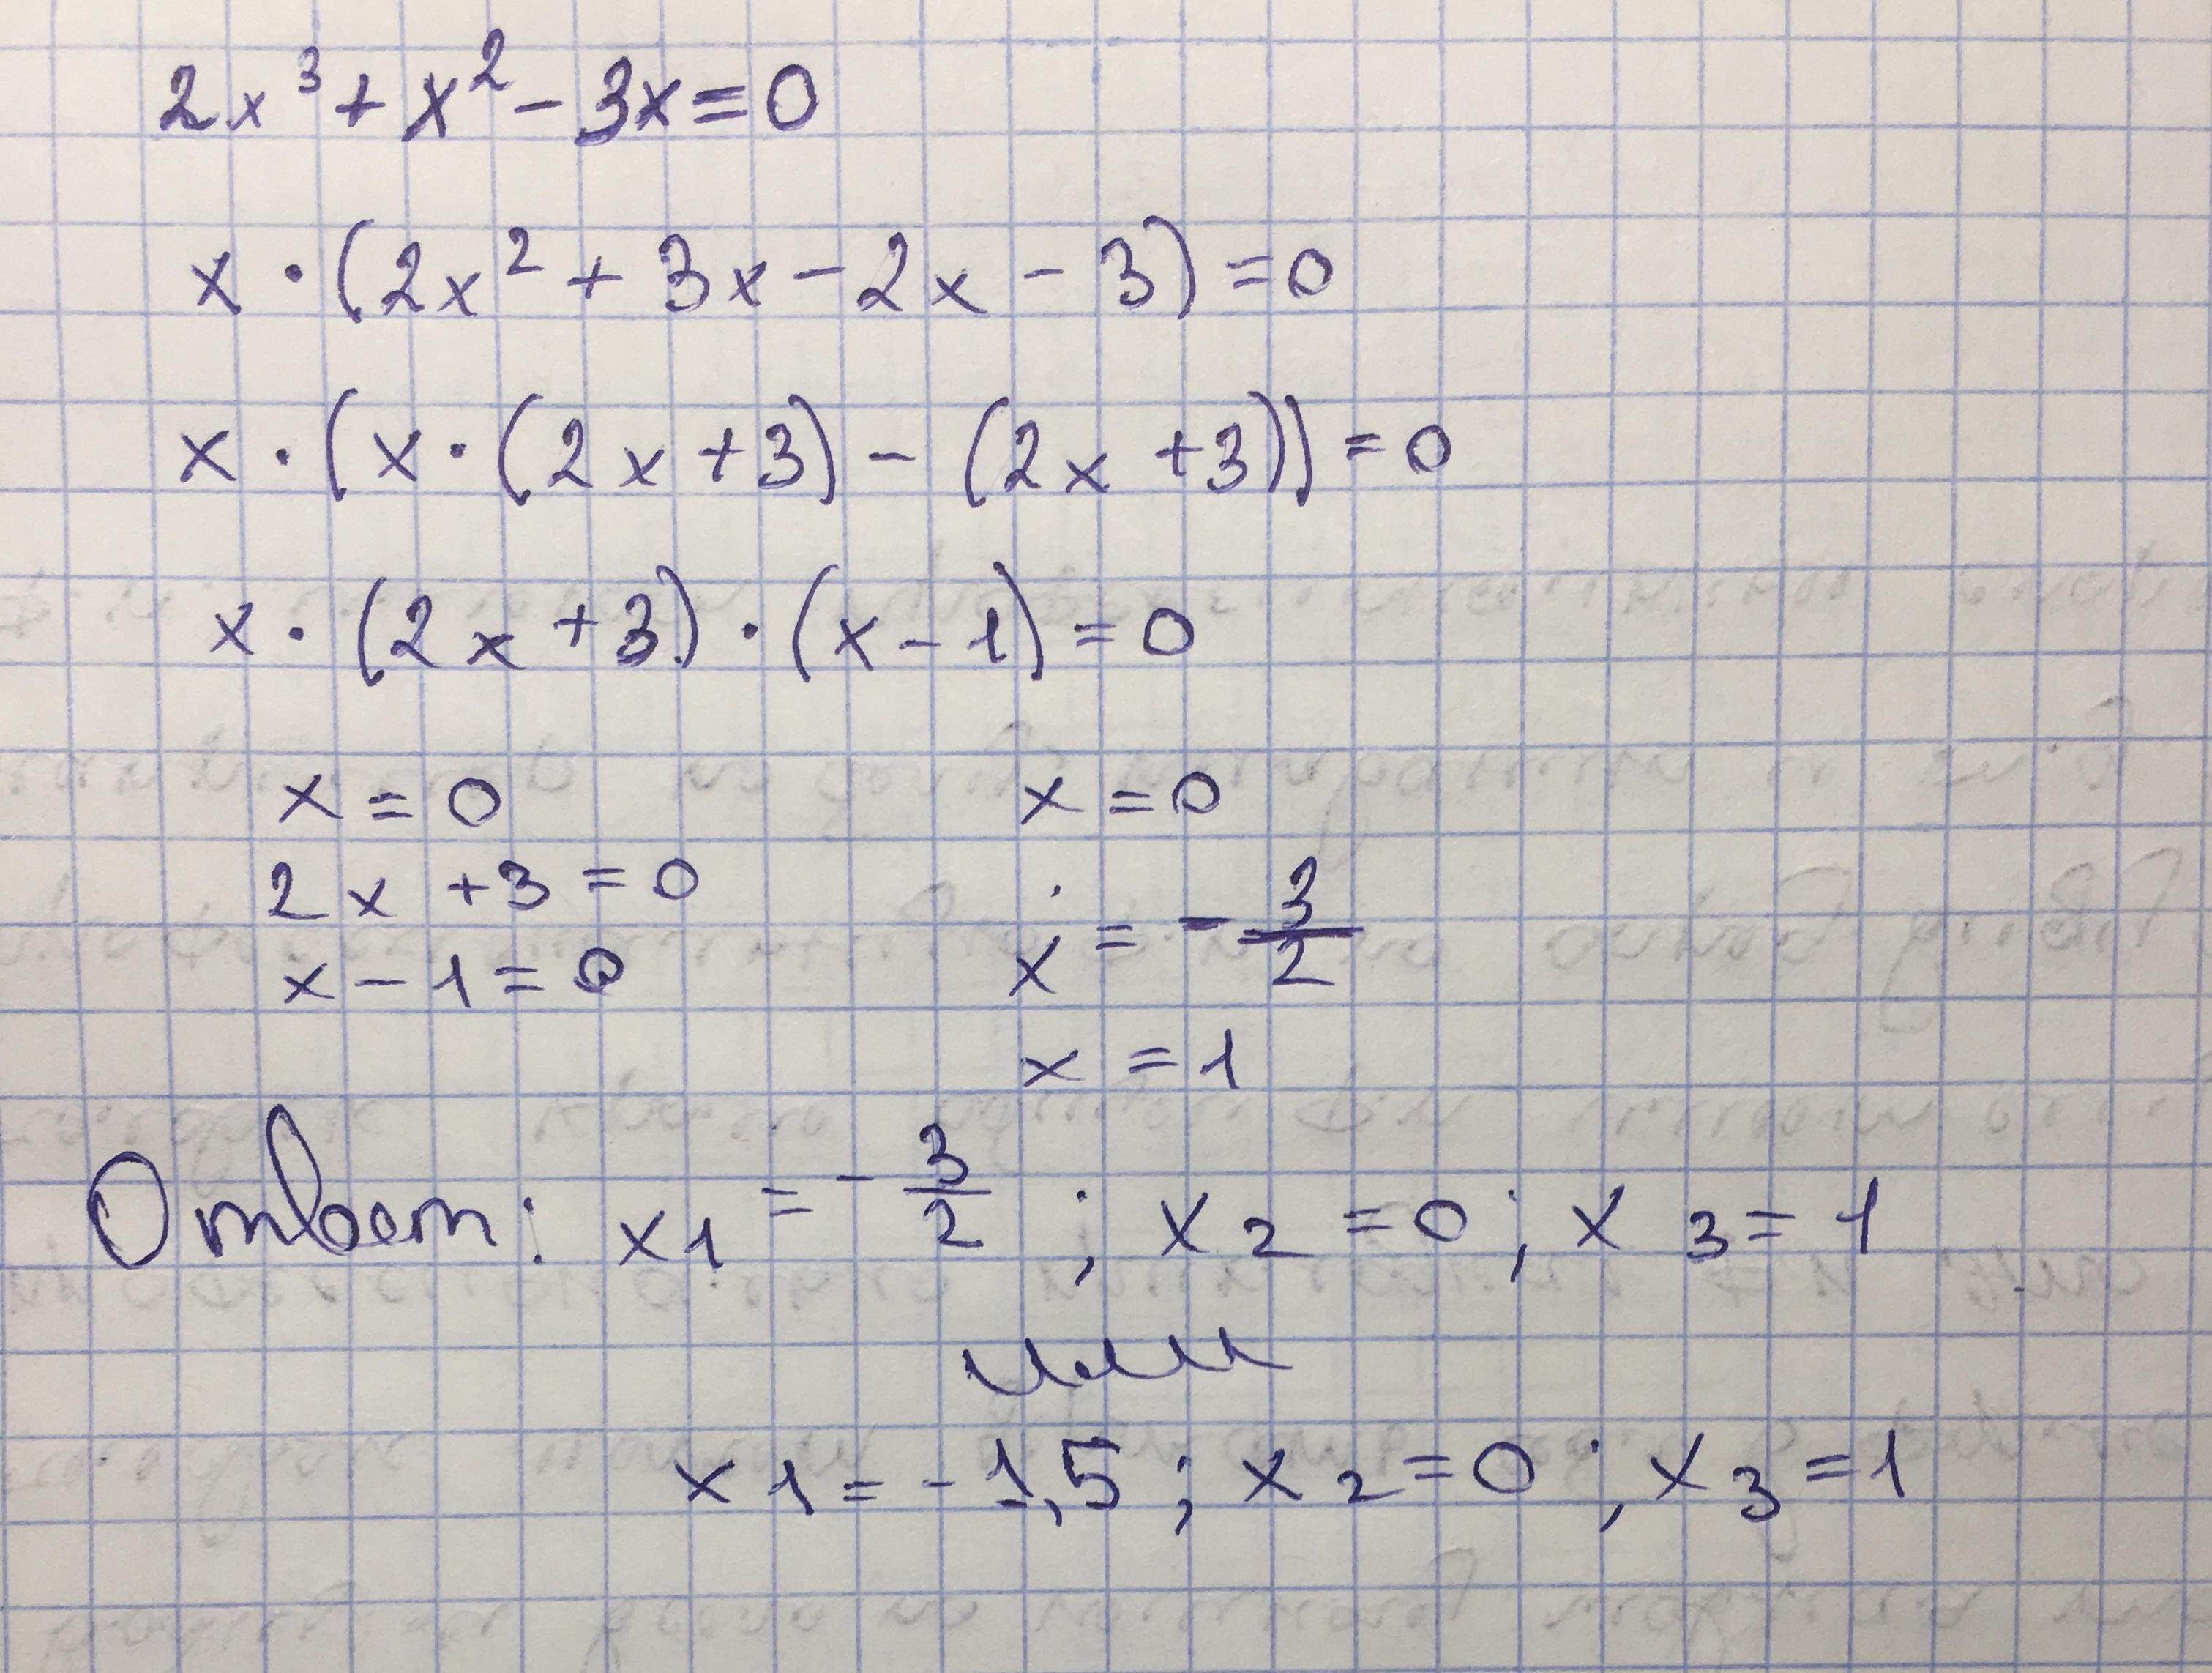 2x³ + x² - 3x = 0
x · (2x² + 3x - 2x - 3) = 0
x · (x · (2x + 3) - (2x + 3)) = 0
x · (2x + 3) · (x - 1) = 0
x = 0 x = 0
2x + 3 = 0 x = - 3/2
x - 1 = 0 x = 1
Ответ: x1 = - 3/2 ; x2 = 0 ; x3 = 1
или
x1 = - 1,5 ; x2 = 0 ; x3 = 1